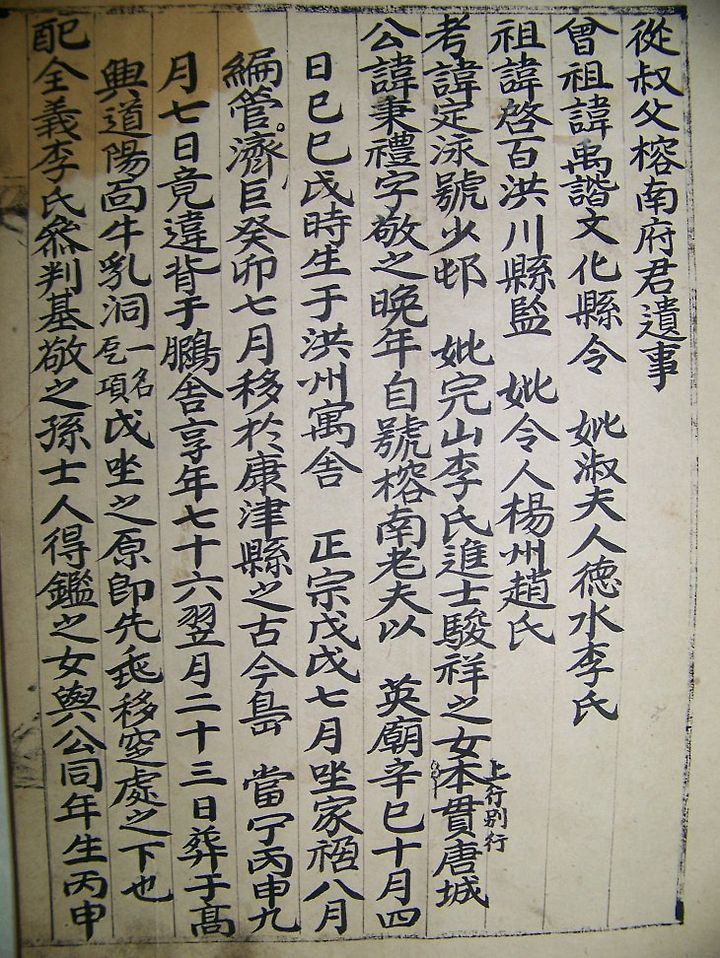 從叔父榕南府君遺事
曾祖諱禹諧文化縣令 妣淑夫人德水李氏
祖諱啓百洪川縣監 妣令人楊州趙氏
考諱定泳號少邨 妣完山李氏進士駿祥之女本貫唐城
上行別行
公諱秉禮字敬之晩年自號榕南老夫以 英廟辛巳十月四
日巳巳戌時生于洪州寓舍 正宗戊戌七月坐家禍八月
編管濟巨癸卯七月移於康津縣之古今島 當宁丙申九
月七日竟違背于鵩舍享年七十六翌月二十三日葬于高
興道陽面牛乳洞一名戊坐之原卽先兆移窆處之下也
配全義李氏參判基敬之孫士人得鑑之女與公同年生丙申